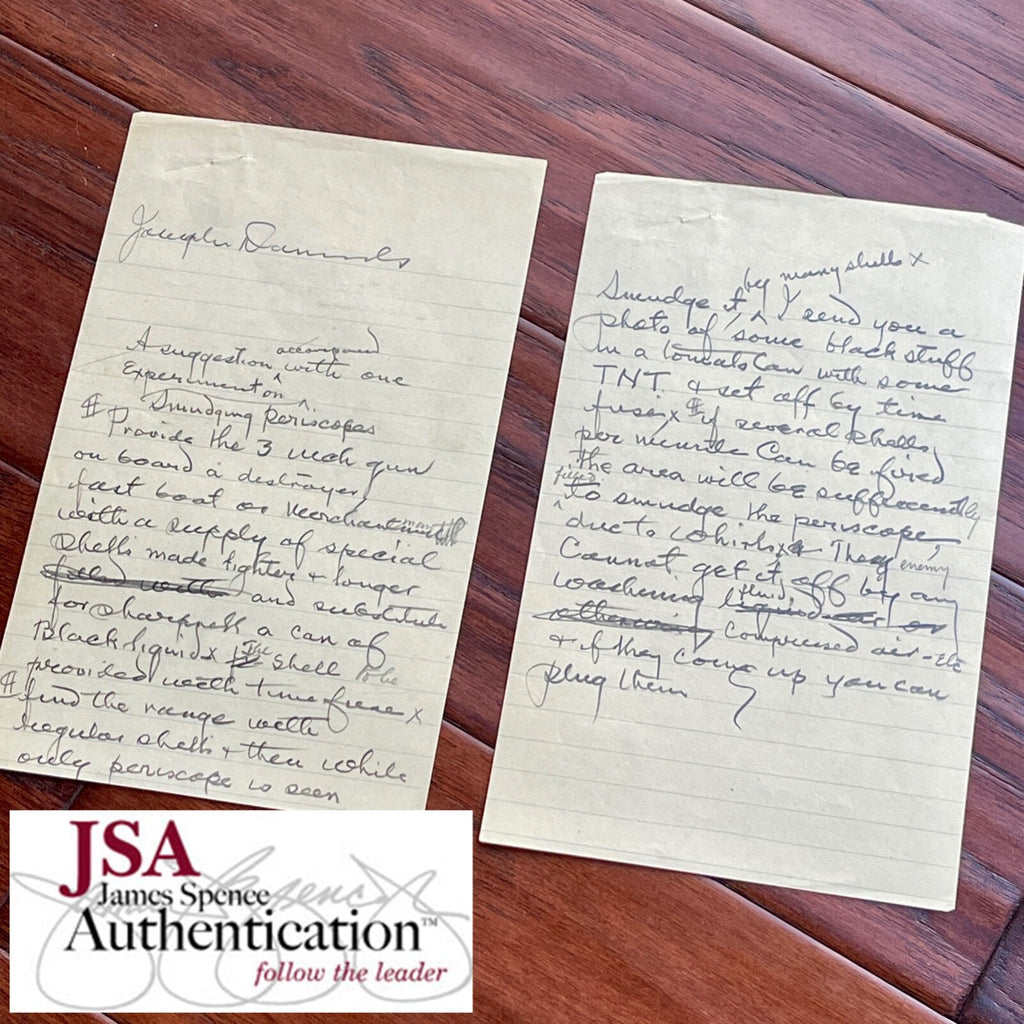 Joseph Daniels
A suggestion accompand with one
Experiment on
Smudging periscopes
# Provide the 3 inch gun
on board a destroyer,
fast boat or Merchant
with a supply of special
shells made lighter & longer
filled with and substitute
for sharpnell a can of
Black liquid x The Shell to be
provided with time fuse x
# find the range with
regular shells & then while
only periscope is seen
Smudge it, by many shells x I send you a
photo of some black stuff
in a tomato Can with some
TNT & set off by time
fuse x # if several shells
per minute Can be fired
the area will be sufficiently
filled to smudge the periscope,
due to whirls x The enemy
Cannot get it off by any
washing fluid,
Compressed air - etc
& if they come up you can
plug them
JSA
James Spence
Authentication™
follow the leader